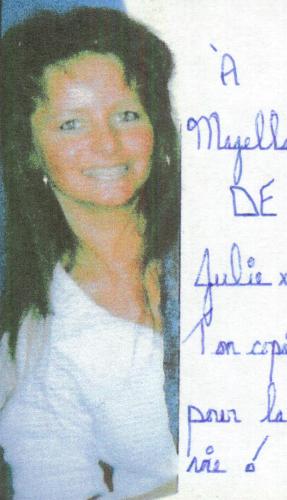 À
Magella
DE
Julie x
Ton copi
pour la
vie ó